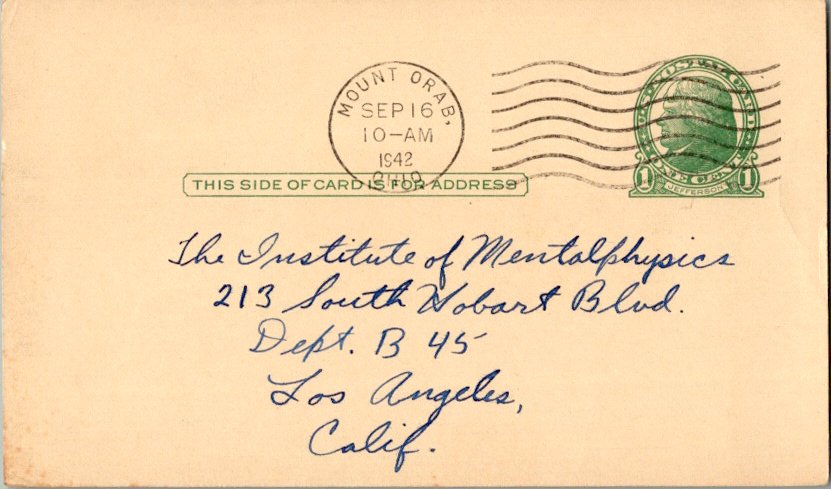 MOUNT ORAB,
SEP 16
10-AM
1942
OHIO
U.S. POSTAL CARD
ONE CENT
1 JEFFERSON 1
THIS SIDE OF CARD IS FOR ADDRESS
The Institute of Mentalphysics
213 South Hobart Blvd.
Dept. B 45
Los Angeles,
Calif.